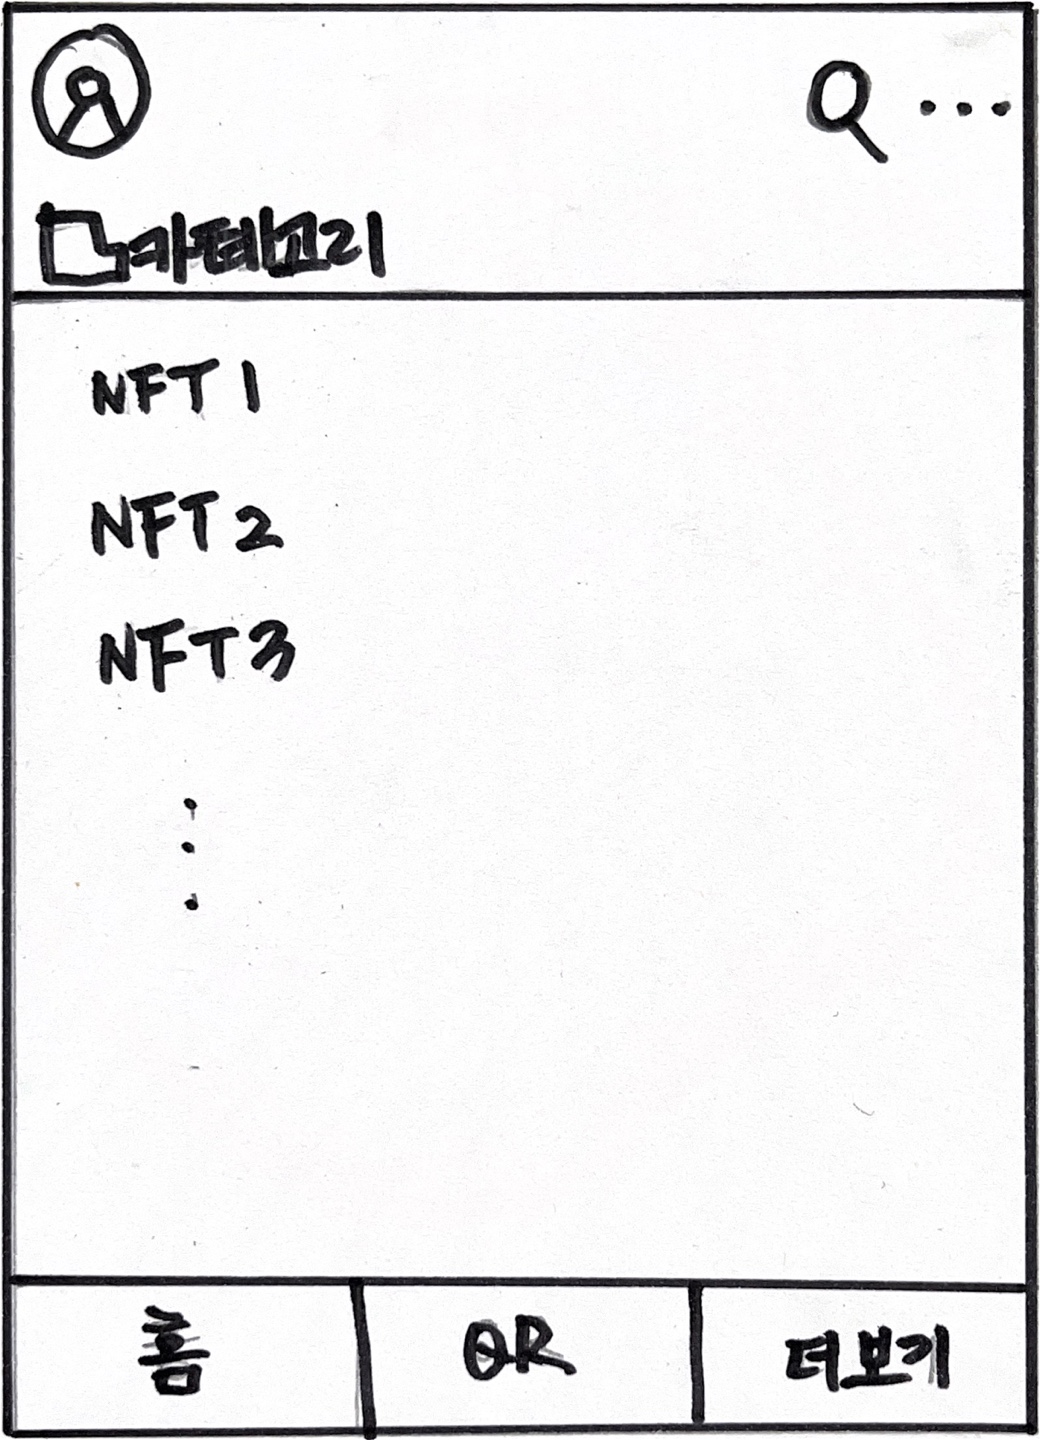 카테고리
NFT 1
NFT 2
NFT 3
홈 QR 더보기